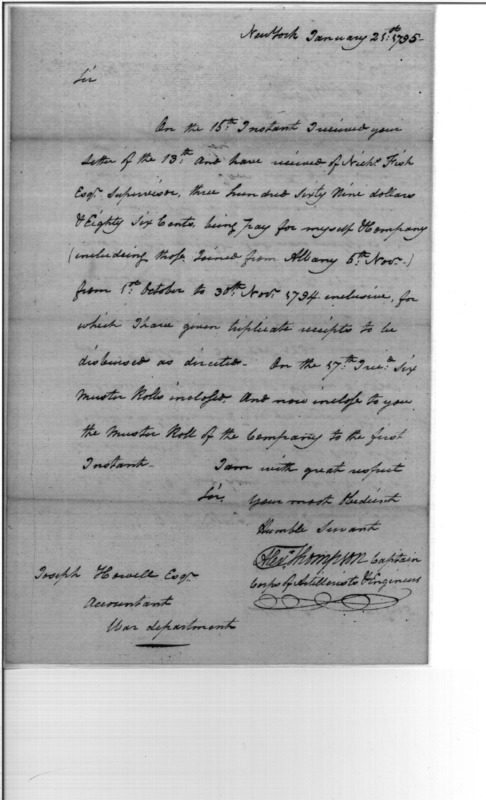 New York January 21st 1795-
Sir
On the 15th Instant I received your
Letter of the 13th and have received of Nichs Fish
Esqr. Supervisor, three hundred Sixty Nine dollars
& Eighty Six Cents, being pay for myself & Company
(including those Joined from Albany 6th Novr.)
from 1st October to 30th Novr. 1794 inclusive, for
which I have given triplicate receipts to be
disbursed as directed - On the 17th Six
Muster Rolls inclosed. And now inclose to you
the Muster Roll of the Company to the first
Instant. I am with great respect
Sir, Your most Obedient
Humble Servant
Alexr. Thompson Captain
Corps of Artillerists & Engineers
Joseph Howell Esqr.
Accountant
War department